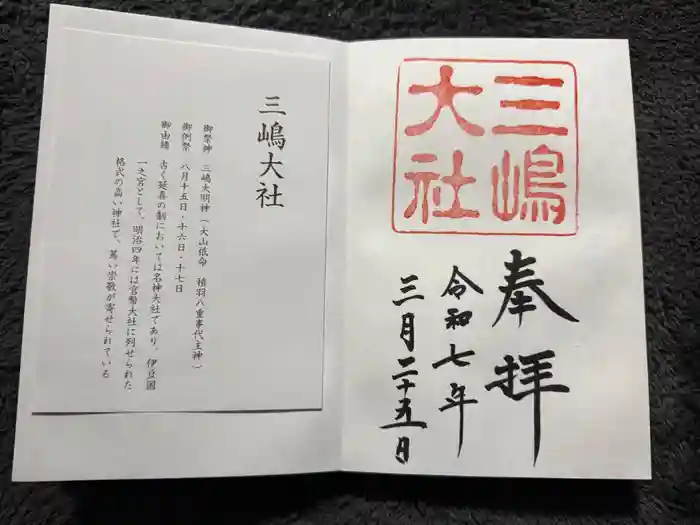 三嶋大社
御祭神　三嶋大明神（大山祇命　積羽八重事代主神）
御例祭　八月十五日・十六日・十七日
御由緒　古く延喜の制においては名神大社であり、伊豆国
一之宮として、明治四年には官幣大社に列せられた
格式の高い神社で、篤い崇敬が寄せられている
三嶋
大社
奉拝
令和七年
三月二十五日